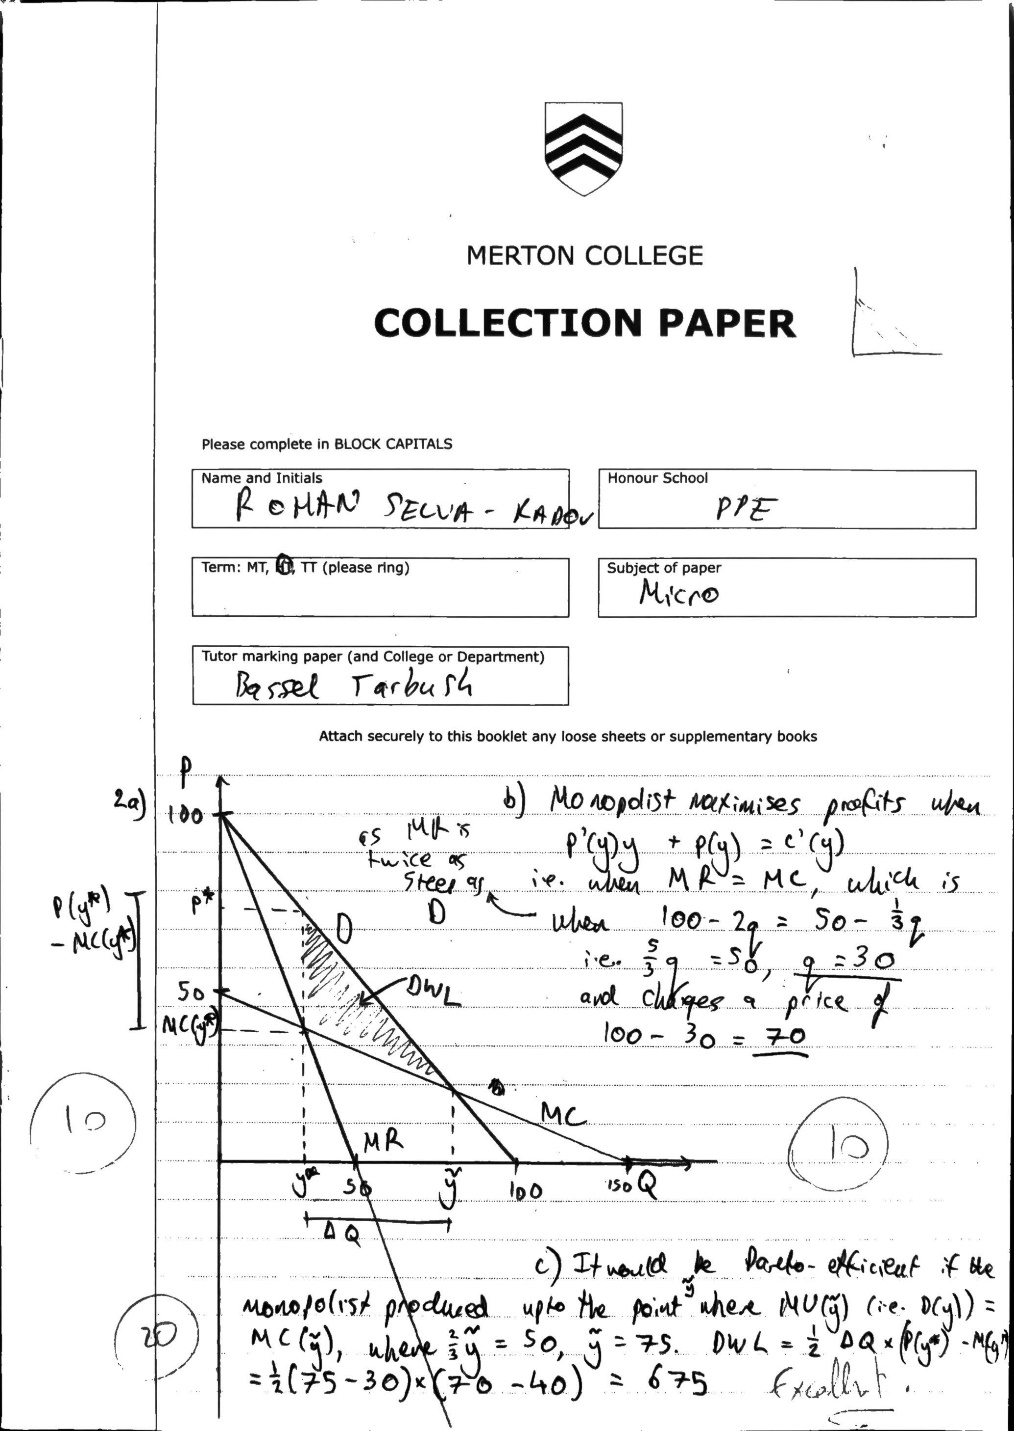 MERTON COLLEGE
COLLECTION PAPER
Please complete in BLOCK CAPITALS
Name and Initials
ROMAN SELVA - KADOV
Honour School
PPE
Term: MT, HT, TT (please ring)
Subject of paper
Micro
Tutor marking paper (and College or Department)
Bassel Tarbush
Attach securely to this booklet any loose sheets or supplementary books
2a)
P
100
P(y*)
- MC(y*)
P*
D
50
MC(y*)
DWL
MC
MR
y*
50
ỹ
100
150 Q
ΔQ
10
b) Monopolist maximises profits when
p'(y)y + p(y) = c'(y)
i.e. when MR = MC, which is
as MR is
twice as
steep as
D
when 100 - 2q = 50 - 1/3 q
i.e. 5/3 q = 50, q = 30
and charges a price of
100 - 30 = 70
10
c) It would be Pareto-efficient if the
monopolist produced upto the point ỹ where MU(ỹ) (i.e. D(y)) =
MC(ỹ), where 2/3 ỹ = 50, ỹ = 75. DWL = 1/2 ΔQ × (P(y*) - MC(y*)
= 1/2 (75 - 30) × (70 - 40) = 675
20
Excellent.